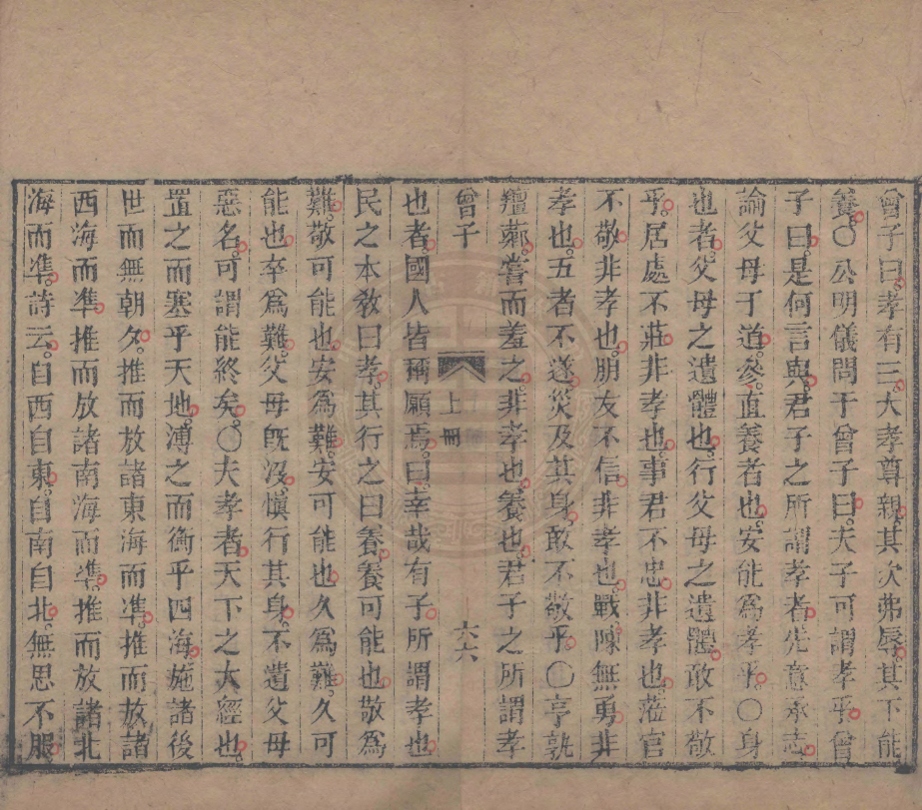 曾子曰。孝有三。大孝尊親。其次弗辱。其下能
養。〇公明儀問于曾子曰。夫子可謂孝乎。曾
子曰。是何言與。君子之所謂孝者。先意承志。
論父母于道。參。直養者也。安能爲孝乎。〇身
也者。父母之遺體也。行父母之遺體。敢不敬
乎。居處不莊。非孝也。事君不忠。非孝也。蒞官
不敬。非孝也。朋友不信。非孝也。戰陳無勇。非
孝也。五者不遂。災及其身。敢不敬乎。〇亨孰
羶薌。嘗而羞之。非孝也。養也。君子之所謂孝
曾子 上冊 六六
也者。國人皆稱願焉。曰。幸哉有子。所謂孝也
民之本敎曰孝。其行之曰養。養可能也。敬爲
難。敬可能也。安爲難。安可能也。久爲難。久可
能也。卒爲難。父母旣沒。愼行其身。不遺父母
惡名。可謂能終矣。〇夫孝者。天下之大經也。
置之而塞乎天地。溥之而衡乎四海。施諸後
世而無朝夕。推而放諸東海而準。推而放諸
西海而準。推而放諸南海而準。推而放諸北
海而準。詩云。自西自東。自南自北。無思不服。